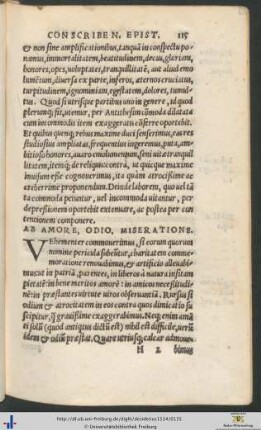 CONSCRIBEN. EPIST. 115
& non sine amplificationibus, tanquā in conspectu po-
namus, immortalitatem, beatitudinem, decus, gloriam,
honores, opes, voluptates, tranquillitatē, aut aliud emo
lumētum, diuersa ex parte, inferos, æternos cruciatus,
turpitudinem, ignominiam, egestatem, dolores, tumul-
tus. Quod si utrisque partibus uno in genere, id quod
plerunq; fit, utemur, per Antithesim cōmoda dilatata
cum incommodis item exaggeratis cōferre oportebit.
Et quibus quenq; rebus maxime duci senserimus, eas res
studiosius ampliatas, frequentius ingeremus, puta, am-
bitioso honores, auaro emolumentum, seni uitæ tranquil
litatem, itemq; de reliquis contra, ut quicque maxime
inuisum esse cognouerimus, ita quàm atrocissime ac
acerbeme proponendum. Deinde laborem, quo uel tā
ta commoda petuntur, uel incommoda uitantur, per
depressionem oportebit extenuare, ac postea per con
tentionem componere.
AB AMORE, ODIO, MISERATIONE.
Vehementer commouerimus, si eorum quorum
nomine pericula subeūtur, charitatem comme-
moratione renouabimus, & artificio alleuabi-
mus: ut in patriā, parentes, in liberos à natura insitam
pietatē: in bene meritos amorē: in amicos necessitudi-
nē: in præstantes uirtute uiros obseruantiā. Rursus si
odium & atrocitatem in eos contra quos dimicatio su
scipitur, q̄ grauissime exaggerabimus. Neq; enim amā
ti solū (quod antiquius dictū est) nihil est difficile, uerū
idem & odiū præstat. Quare utriusq; calcar admoue-
H 2 bimus
http://dl.ub.uni-freiburg.de/diglit/desiderius1534/0131
© Universitätsbibliothek Freiburg